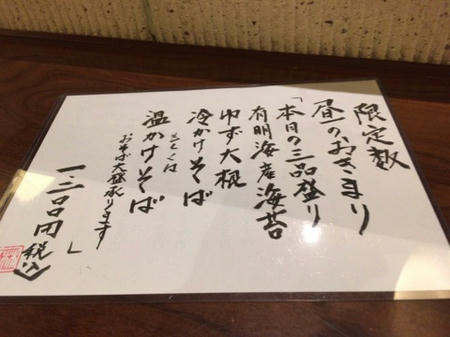 限定数
昼のおきまり
「本日の三品盛り
有明海産海苔
ゆず大根
冷かけそば
もしくは
温かけそば
おそば大盛承ります
一三〇〇円」
税込